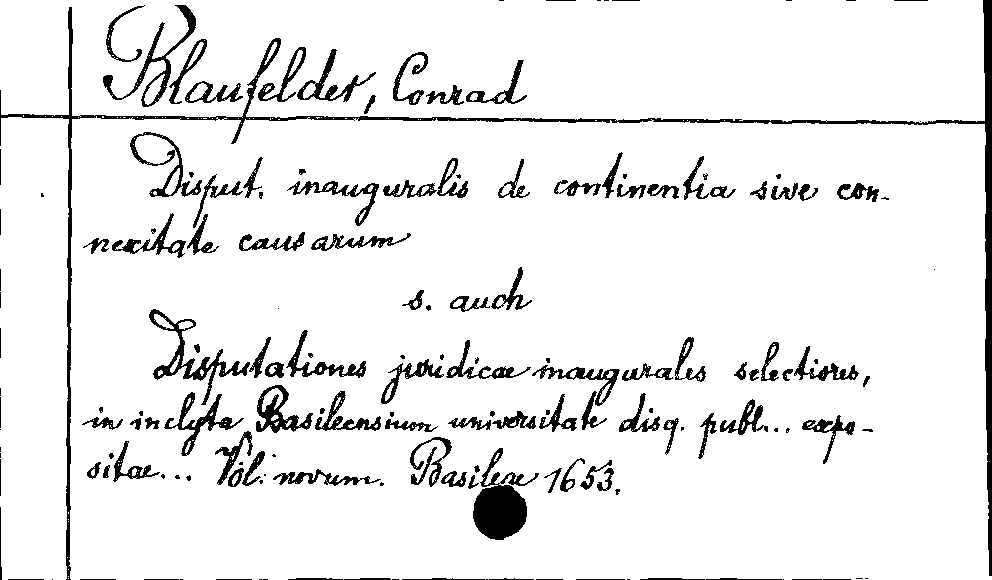 Blaufelder, Conrad
Disput. inauguralis de continentia sive con-
nexitate causarum
s. auch
Disputationes juridicae inaugurales selectiores,
in inclyta Basileensium universitate disq. publ... expo-
sitae... Vol. novum. Basileae 1653.